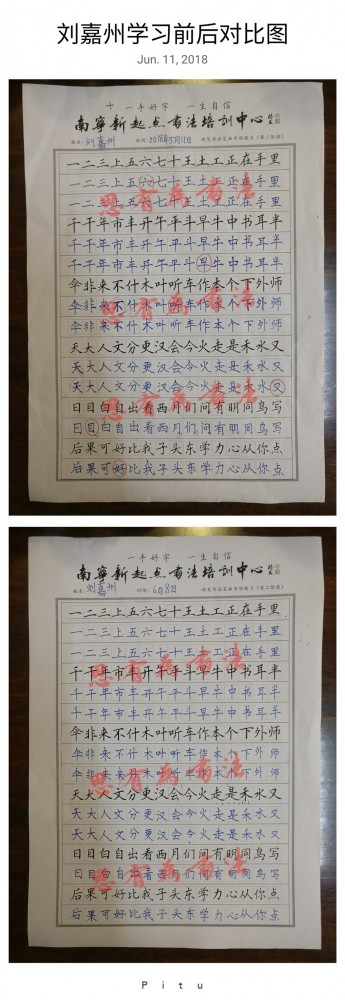 刘嘉州学习前后对比图
Jun. 11, 2018
一手好字 一生自信
南宁新起点书法培训中心
姓名：刘嘉州 时间：2018年5月11日 硬笔书法笔画专项练习（第二阶段）
一二三上五六七十王土工正在手里
一二三上五六七十王土工正在手里
一二三上五六七十王土工正在手里
千干年市丰开午平斗早牛中书耳半
千干年市丰开午平斗早牛中书耳半
千干年市丰开午平斗早牛中书耳半
伞非来不什木叶听车作本个下外师
伞非来不什木叶听车作本个下外师
伞非来不什木叶听车作本个下外师
天大人文分更汉会今火走是禾水又
天大人文分更汉会今火走是禾水又
天大人文分更汉会今火走是禾水又
日目白自出看西月们问有明同鸟写
日目白自出看西月们问有明同鸟写
后果可好比我子头东学力心从你点
后果可好比我子头东学力心从你点
一手好字 一生自信
南宁新起点书法培训中心
姓名：刘嘉州 时间：6月8日 硬笔书法笔画专项练习（第二阶段）
一二三上五六七十王土工正在手里
一二三上五六七十王土工正在手里
一二三上五六七十王土工正在手里
千干年市丰开午平斗早牛中书耳半
千干年市丰开午平斗早牛中书耳半
千干年市丰开午平斗早牛中书耳半
伞非来不什木叶听车作本个下外师
伞非来不什木叶听车作本个下外师
伞非来不什木叶听车作本个下外师
天大人文分更汉会今火走是禾水又
天大人文分更汉会今火走是禾水又
天大人文分更汉会今火走是禾水又
日目白自出看西月们问有明同鸟写
日目白自出看西月们问有明同鸟写
后果可好比我子头东学力心从你点
后果可好比我子头东学力心从你点
Pitu